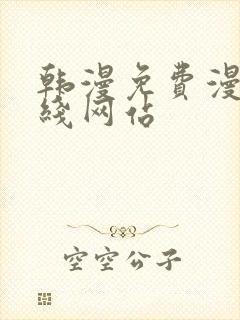 韩漫免费漫
线网站
空空公子